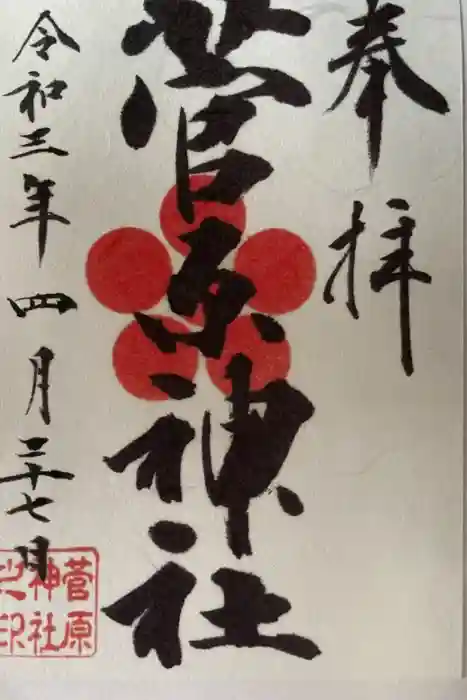 奉拝
菅原神社
令和三年四月二十七日
菅原
神社
之印